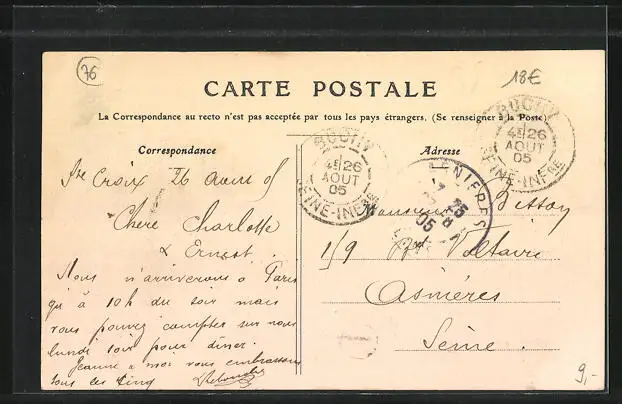 76
18€
CARTE POSTALE
La Correspondance au recto n'est pas acceptée par tous les pays étrangers. (Se renseigner à la Poste)
Correspondance
Adresse
BUCHY
4E 26
AOUT
05
SEINE-INFRE
BUCHY
4E 26
AOUT
05
SEINE-INFRE
NIERES
05
Ste Croix 26 Aout 05
Chère Charlotte
& Ernest.
Nous n'arriverons à Paris
qu'à 10h du soir mais
vous pouvez compter sur nous
lundi soir pour dîner.
Jeanne & moi vous embrassons
tous les cinq
Monsieur Bisson
1/9 Voltaire
Asnières
Seine.
9,-